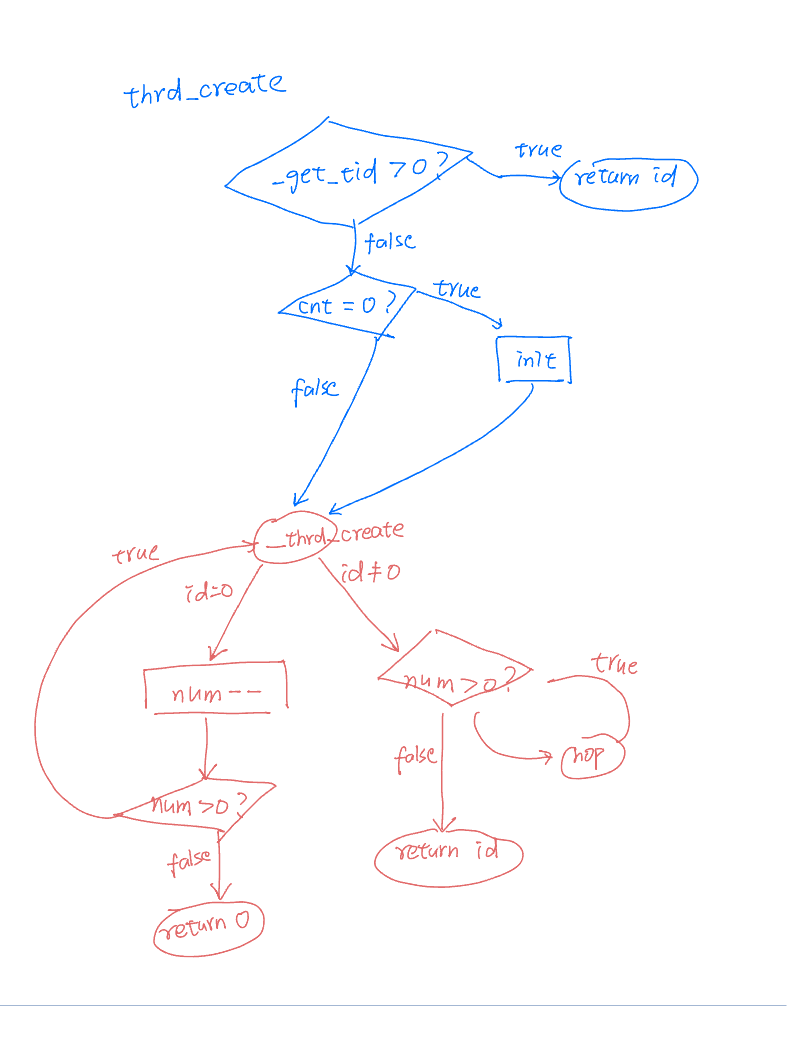 thrd_create
_get_tid > 0 ?
true
return id
false
cnt = 0 ?
true
init
false
_thrd_create
true
id=0
id ≠ 0
num --
num > 0 ?
true
nop
false
num > 0 ?
return id
false
return 0